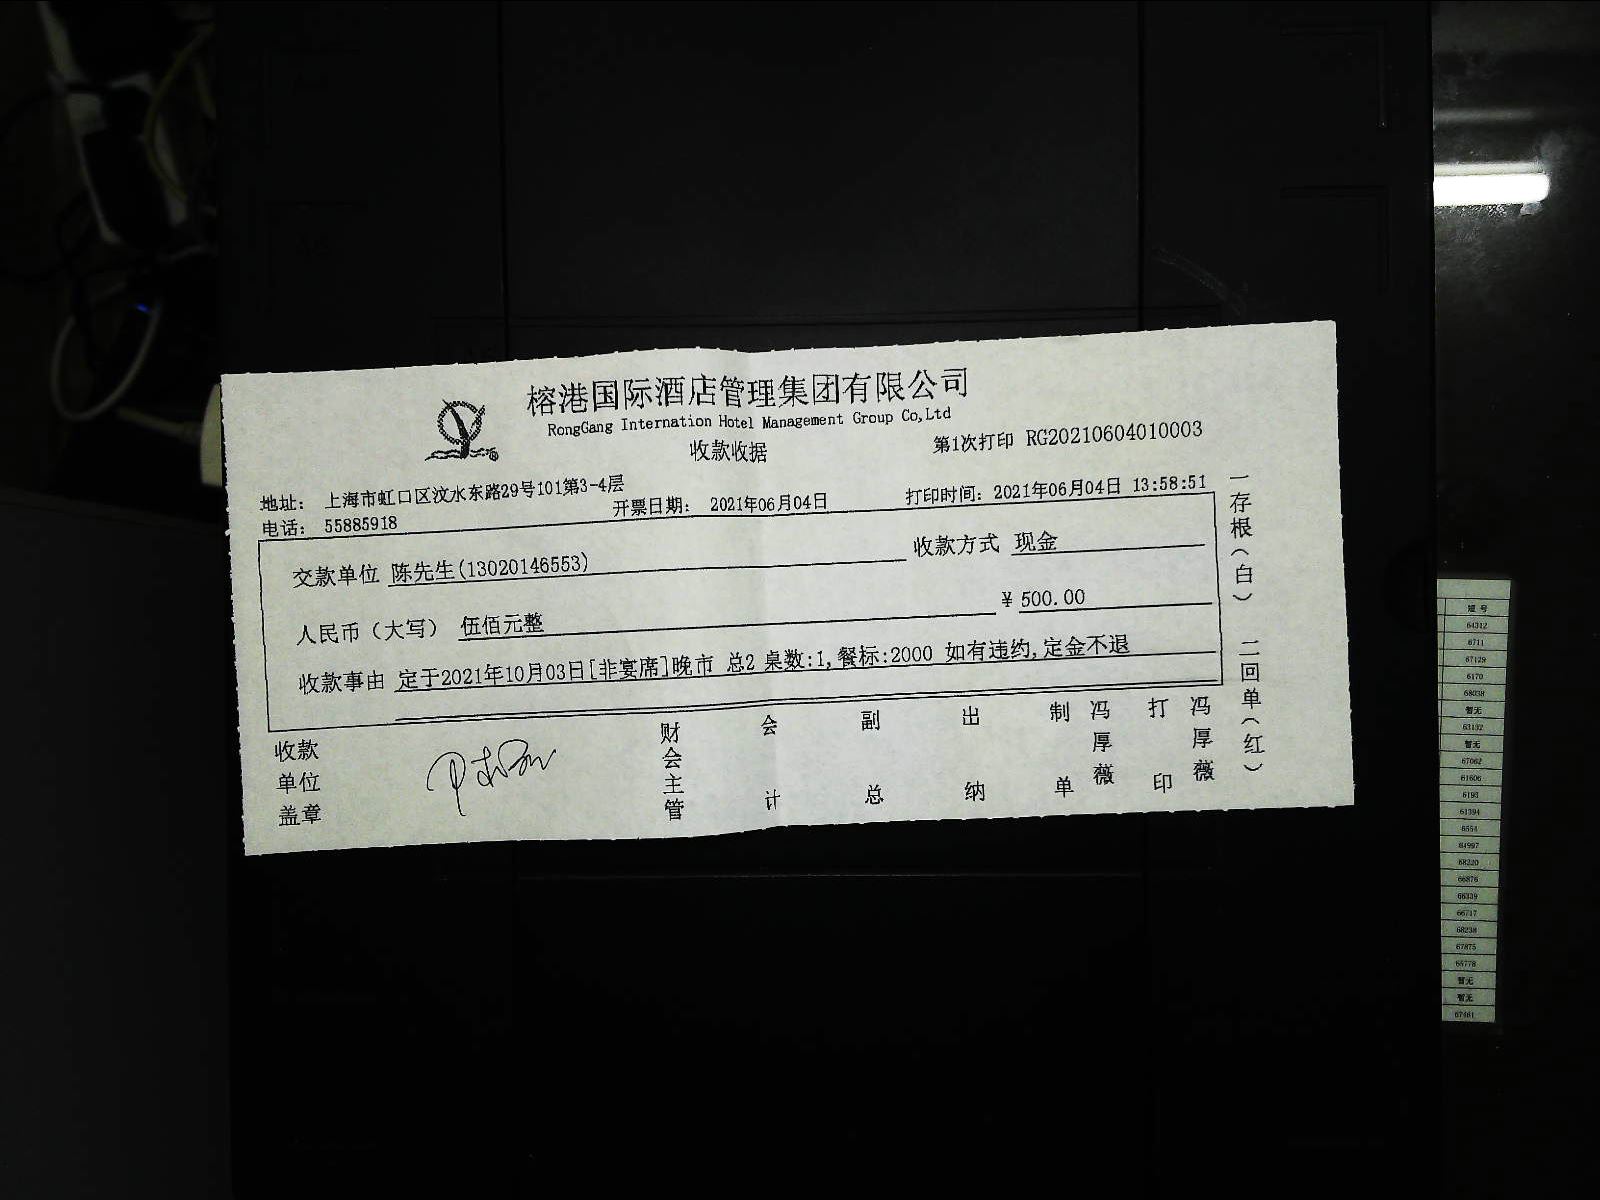 榕港国际酒店管理集团有限公司
RongGang Internation Hotel Management Group Co,Ltd
收款收据
第1次打印 RG20210604010003
地址： 上海市虹口区汶水东路29号101第3-4层
电话： 55885918
开票日期： 2021年06月04日
打印时间：2021年06月04日 13:58:51
交款单位 陈先生(13020146553)
收款方式 现金
人民币（大写） 伍佰元整
￥ 500.00
收款事由 定于2021年10月03日[非宴席]晚市 总2 桌数:1,餐标:2000 如有违约,定金不退
收款单位盖章
财会主管
会计
副总
出纳
制单 冯厚薇
打印 冯厚薇
一存根(白) 二回单(红)
短号
64312
6711
67129
6170
68038
暂无
63132
暂无
67062
61606
6193
61394
6554
64997
68220
66876
66339
66717
68238
67875
65778
暂无
暂无
67461